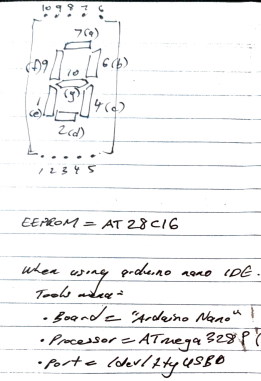 10 9 8 7 6
7(a)
(f)9 6(b)
10
(g)
1 4(c)
(e)
2(d)
1 2 3 4 5
EEPROM = AT28C16
When using arduino nano IDE.
Tools menu =
• Board = "Arduino Nano"
• Processor = ATmega328P (
• Port = /dev/ttyUSB0